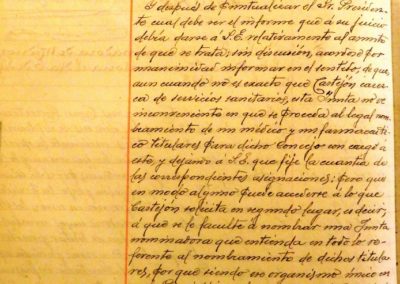 Y después de puntualizar el Sr. Presiden-
te cual debe ser el informe que á su juicio
debía darse á S.E. relativamente al asunto
de que se trata; sin discusión, acordose por
unanimidad informar en el sentido, de que,
aun cuando no es exacto que Castejón carez-
ca de servicios sanitarios, esta Junta no ve
inconveniente en que se proceda al legal nom-
bramiento de un médico y un farmacéuti-
co titulares para dicho Concejo con cargo á
esto, y dejando á S.E. que fije la cuantía de
las correspondientes asignaciones; pero que
en modo alguno puede accederse á lo que
Castejón solicita en segundo lugar, es decir,
á que se le faculte á nombrar una Junta
nominadora que entienda en todo lo re-
ferente al nombramiento de dichos titula-
res, por que siendo ese organismo único en